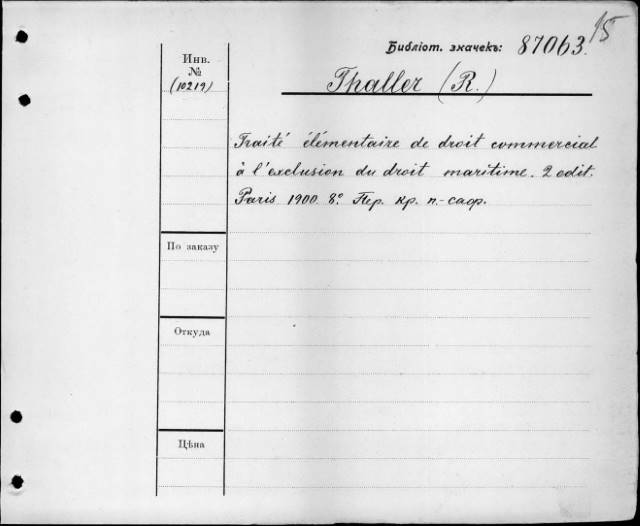 15
Библіот. значекъ: 87063.
Инв.
№
(10219)
Thaller (R.)
Traité élémentaire de droit commercial
à l'exclusion du droit maritime. 2 edit.
Paris 1900. 8º. Пер. кр. п.-саф.
По заказу
Откуда
Цѣна